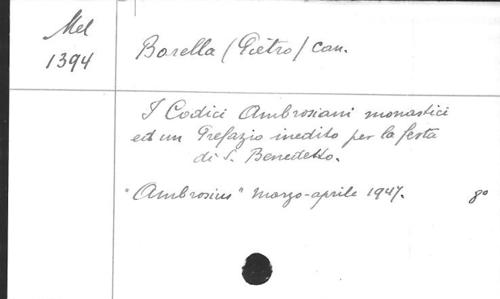 Mel
1394
Borella (Pietro) can.
I Codici Ambrosiani monastici
ed un Prefazio inedito per la festa
di S. Benedetto.
"Ambrosius" marzo-aprile 1947. 8º